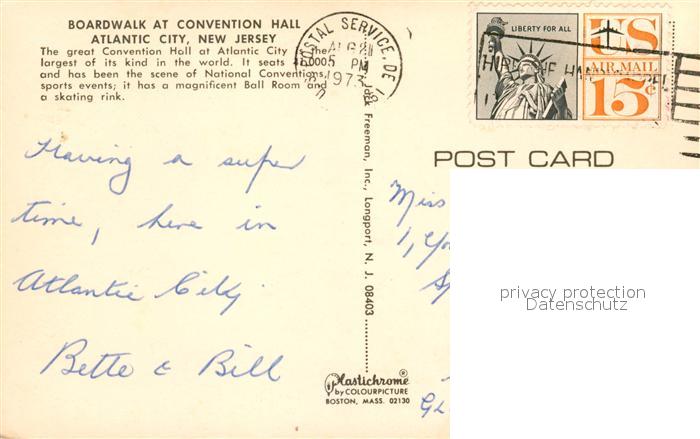 BOARDWALK AT CONVENTION HALL
ATLANTIC CITY, NEW JERSEY
The great Convention Hall at Atlantic City is the
largest of its kind in the world. It seats 41,000
and has been the scene of National Conventions,
sports events; it has a magnificent Ball Room and
a skating rink.
Having a super
time, here in
Atlantic City
Bette & Bill
POSTAL SERVICE, DE
AUG 21
5 PM
1973
Jack Freeman, Inc., Longport, N. J. 08403
Plastichrome®
by COLOURPICTURE
BOSTON, MASS. 02130
LIBERTY FOR ALL
US
AIR MAIL
15¢
HIRE THE HANDICAPPED
POST CARD
Miss
1,
GL
privacy protection
Datenschutz